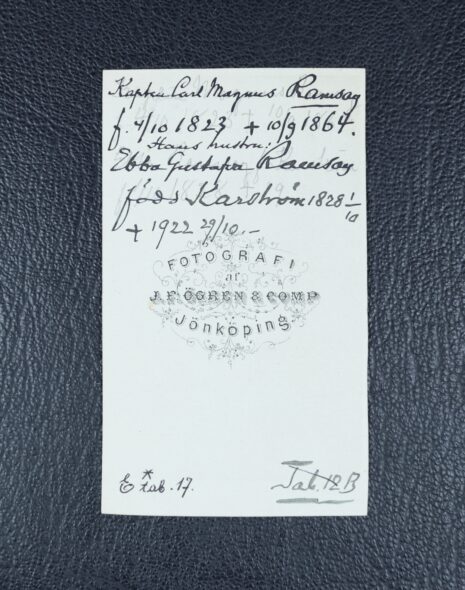 Kapten Carl Magnus Ramsay
f. 4/10 1823 + 10/9 1864.
Hans hustru:
Ebba Gustafva Ramsay
föds Karström 1828 1/10
+ 1922 29/10.-
FOTOGRAFI
af
J. F. ÖGREN & COMP
Jönköping.
E * tab. 17.
Tab. 12 B